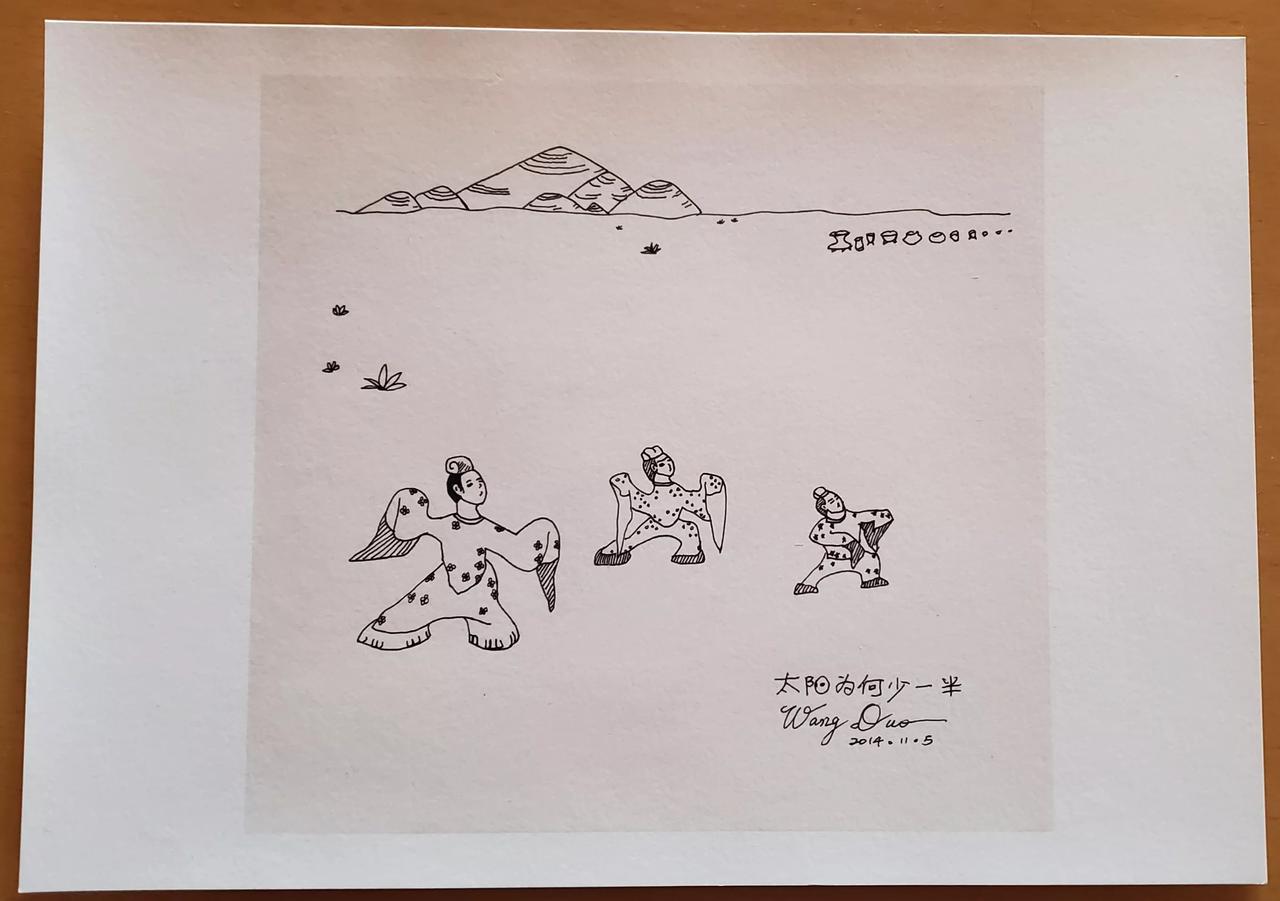 太阳为何少一半
Wang Duo
2014.11.5